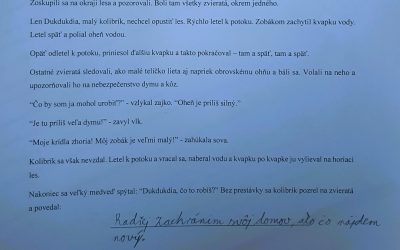 Zoskupili sa na okraji lesa a pozorovali. Boli tam všetky zvieratá, okrem jedného.
Len Dukdukdia, malý kolibrík, nechcel opustiť les. Rýchlo letel k potoku. Zobákom zachytil kvapku vody.
Letel späť a polial oheň vodou.
Opäť odletel k potoku, priniesol ďalšiu kvapku a takto pokračoval – tam a späť, tam a späť.
Ostatné zvieratá sledovali, ako malé telíčko lieta aj napriek obrovskému ohňu a báli sa. Volali na neho a
upozorňovali ho na nebezpečenstvo dymu a kôz.
"Čo by som ja mohol urobiť?" - vzlykal zajko. "Oheň je príliš silný."
"Je tu príliš veľa dymu!" - zavyl vlk.
"Moje krídla zhoria! Môj zobák je veľmi malý!" - zahúkala sova.
Kolibrík sa však nevzdal. Letel k potoku a vracal sa, naberal vodu a kvapku po kvapke ju vylieval na horiaci
les.
Nakoniec sa veľký medveď spýtal: "Dukdukdia, čo to robíš?" Bez prestávky sa kolibrík pozrel na zvieratá
a povedal:
Radšej zachránim môj domov, ako nájdem
nový.